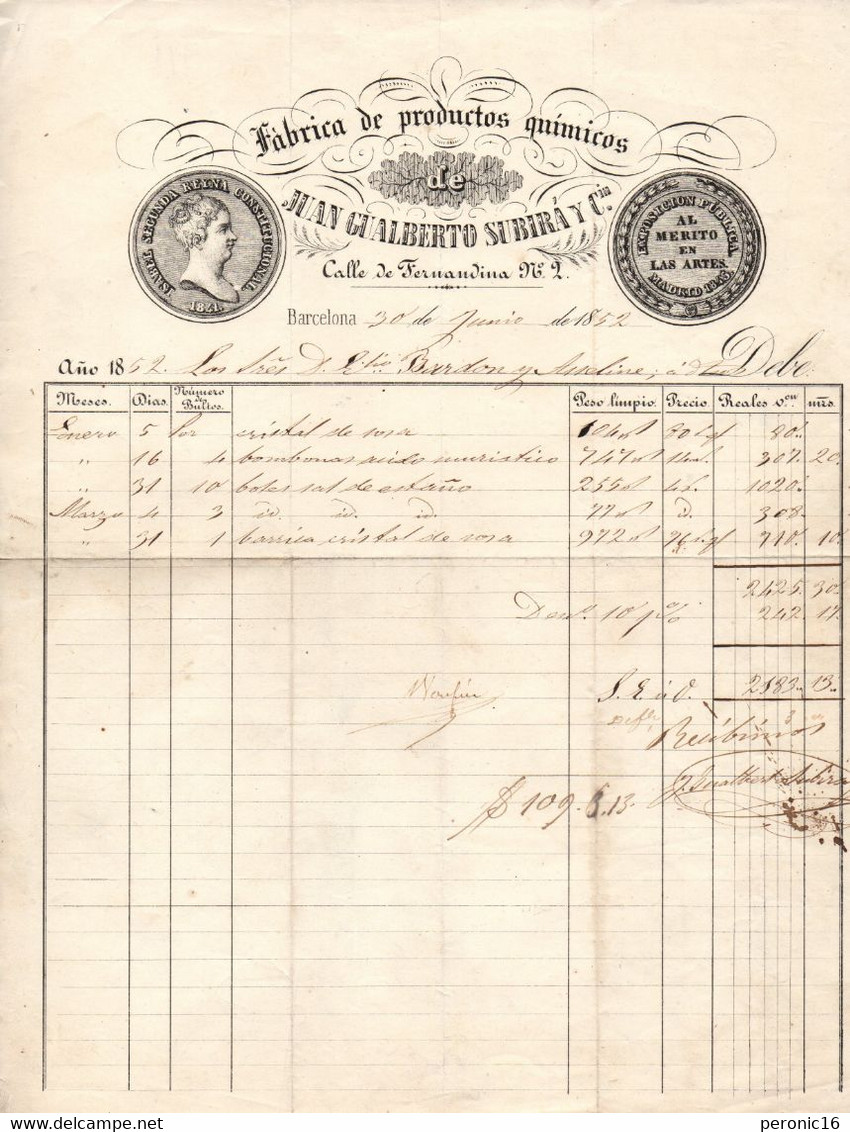 Fábrica de productos químicos
de
JUAN GUALBERTO SUBIRÁ Y Cia
Calle de Fernandina No. 2.
ISABEL SEGUNDA REYNA CONSTITUCIONAL.
1841.
EXPOSICION PÚBLICA.
AL
MERITO
EN
LAS ARTES.
MADRID
Barcelona 30 de Junio de 1852
Año 1852. Los Srês D. Bardon y Asseline, á Debe.
Meses. Dias. Número Bultos. Peso limpio. Precio. Reales v.on mrs.
Enero 5 Por cristal de rosa 80
" 16 4 bombonas acido muriatico 747 307. 20
" 31 10 botes sal de estaño 255 1020
Marzo 4 3 id. id. id. 77 id. 308
" 31 1 barrica cristal de rosa 972 710 10
2425. 30
10 p% 242. 17
S. E. ú O. 2183. 13
Recibimos
J. Gualberto Subirá
$ 109. 13
peronic16